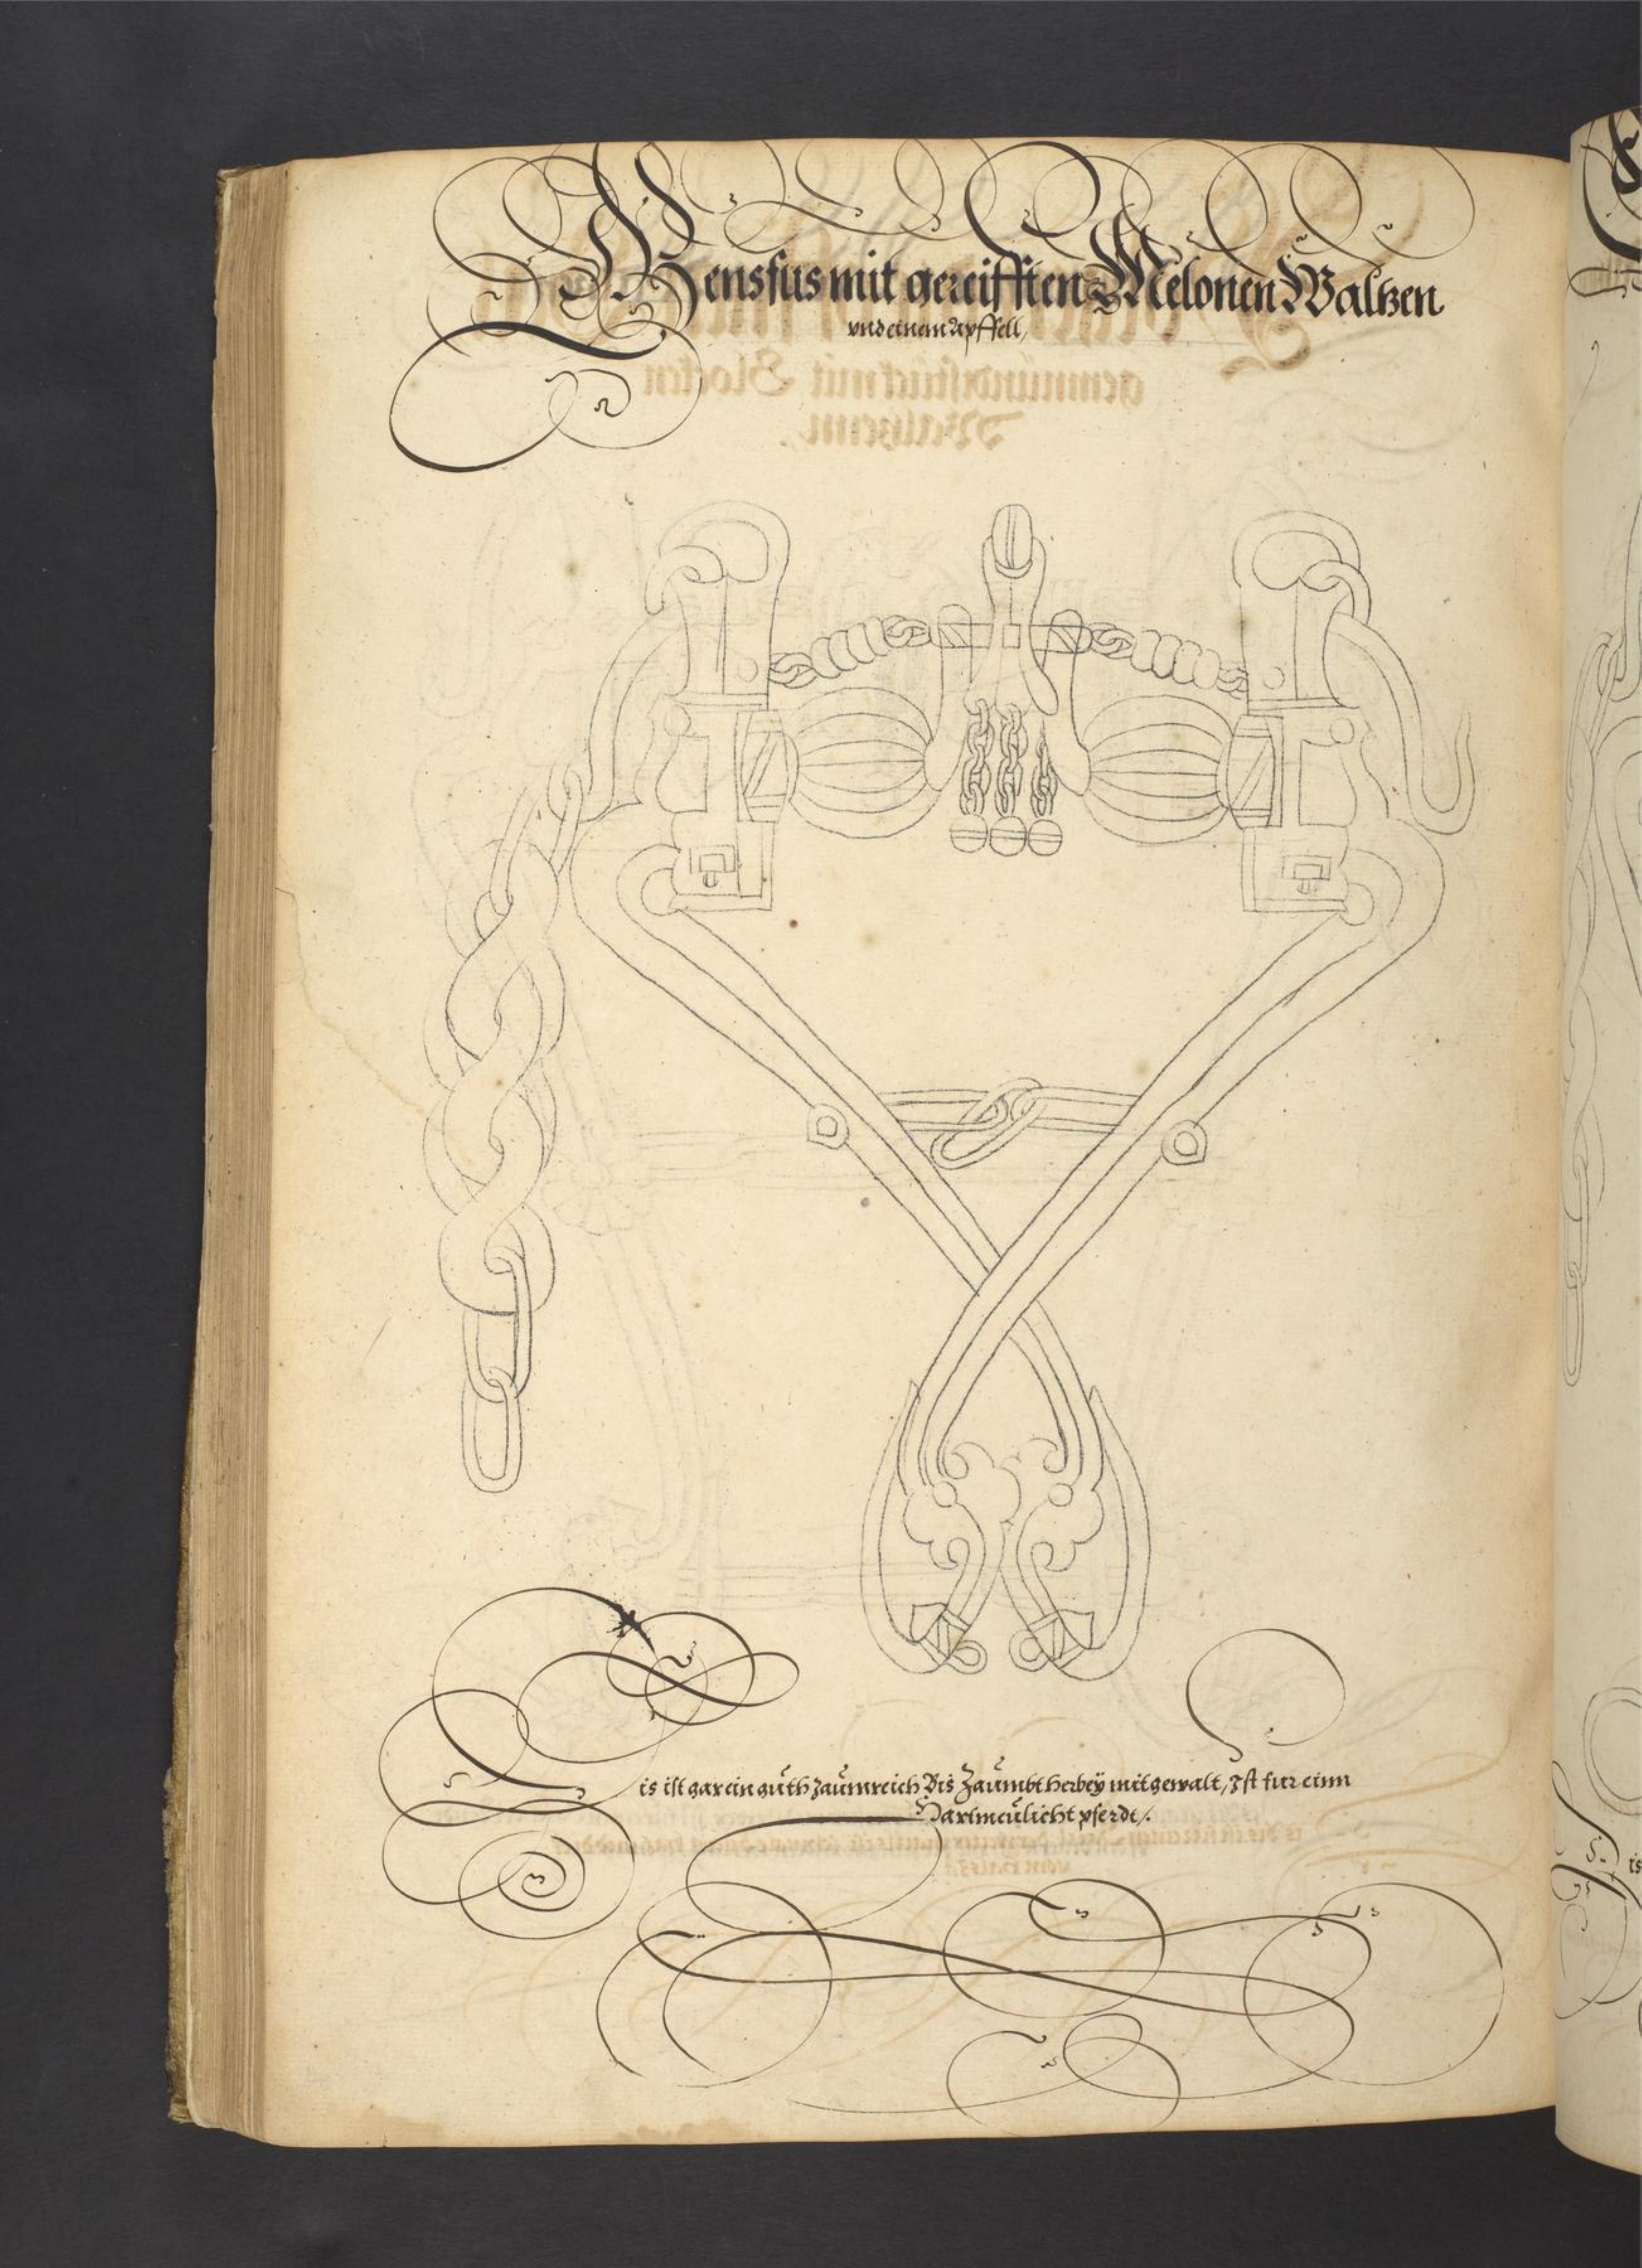 Gensfus mit gereifften Melonen Waltzen
vnd einem Apffell,
is ist gar ein guth Zaumreich Bis Zaumbt herbey mit gewalt, Ist fur einn
Hartmeulicht pferdt/.